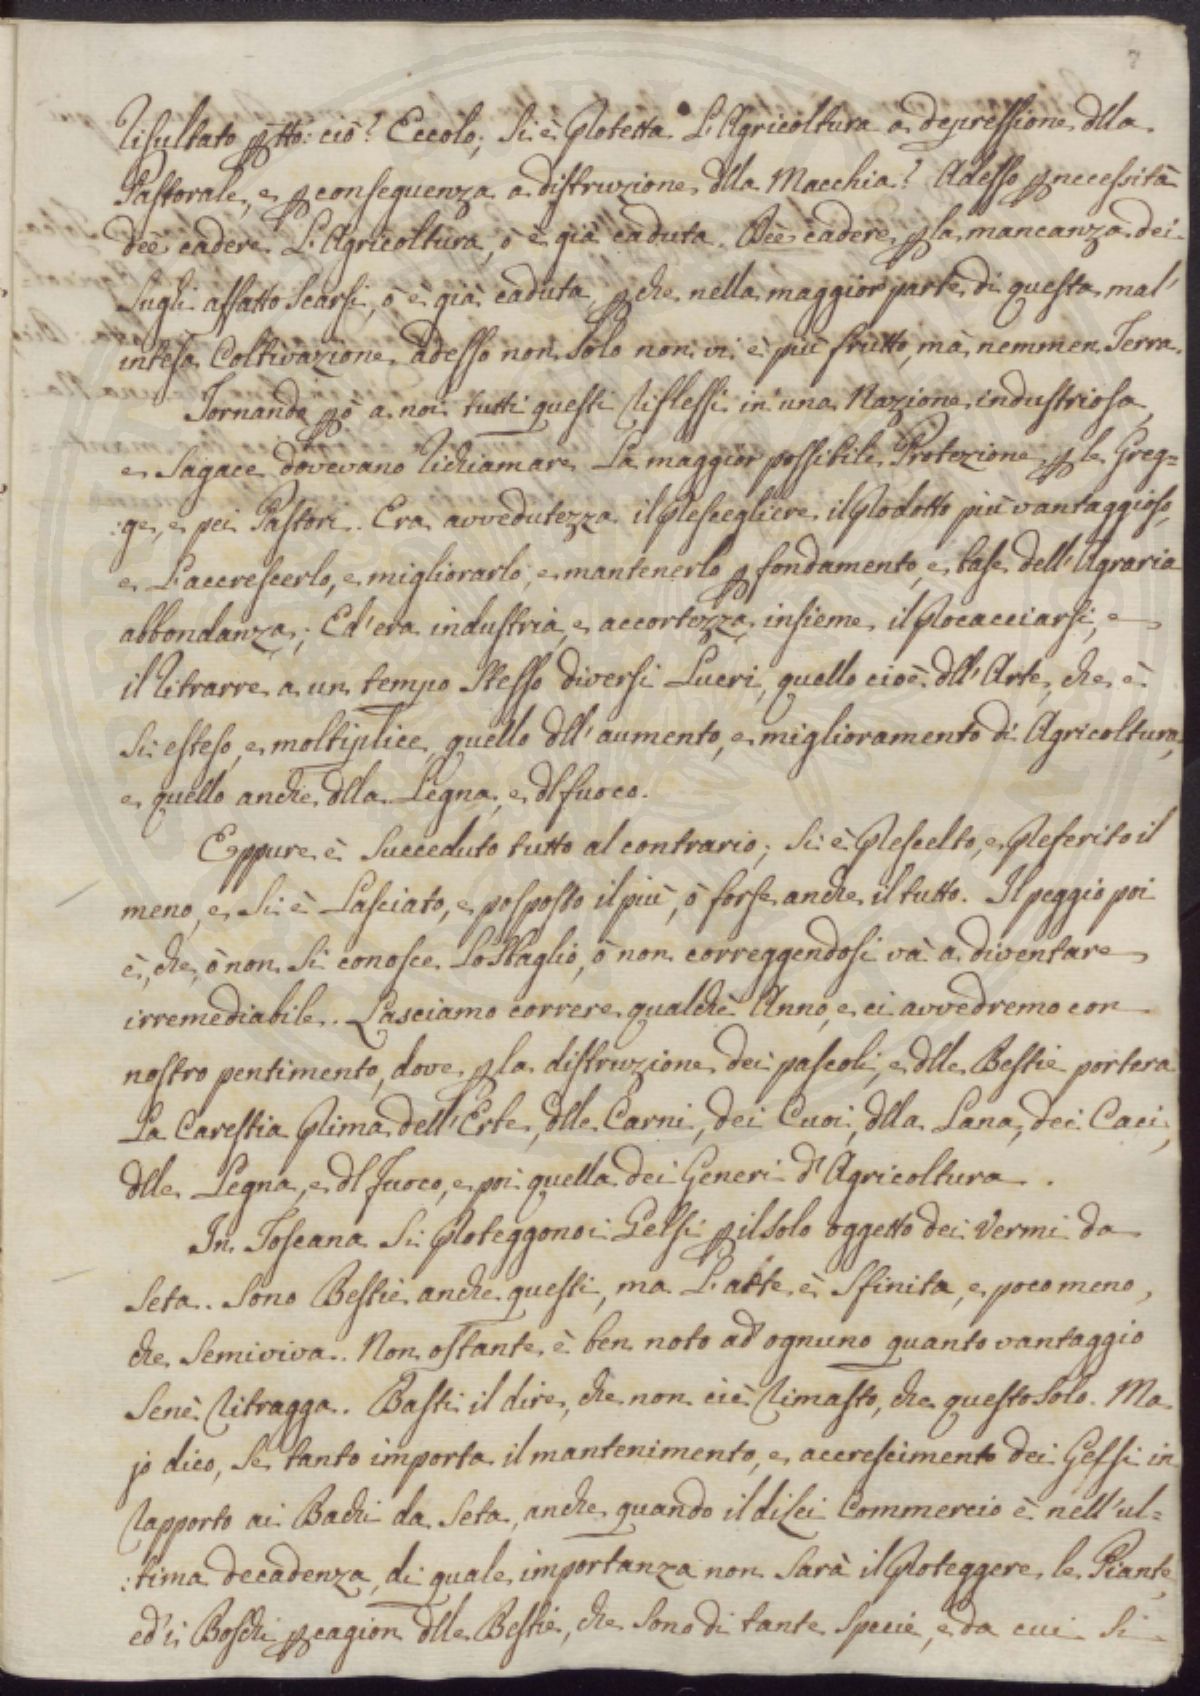 7
Risultato p tto: ciò? Eccolo; Si è Protetta L'Agricoltura a depressione dlla
Pastorale, e p conseguenza a distruzione dlla Macchia? Adesso p necessità
deè cadere L'Agricoltura, ò è già caduta. Deè cadere p la mancanza dei
Sughi affatto Scarsi, ò è già caduta, p che nella maggior parte di questa mal'
intesa Coltivazione adesso non Solo non vi è più frutto, mà nemmen Terra.
Tornando p ò a noi tutti questi Riflessi in una Nazione industriosa,
e Sagace dovevano Richiamare La maggior possibile Protezione p le Greg=
:ge, e pei Pastori. Era avvedutezza il Prescegliere il Prodotto più vantaggioso,
e L'accrescerlo, e migliorarlo, e mantenerlo p fondamento, e base dell'Agraria
abbondanza; Ed'era industria, e accortezza insieme il Procacciarsi, e
il Ritrarre a un tempo Stesso diversi Lucri, quello cioè dll'Arte, che è
Si esteso, e moltiplice, quello dll'aumento, e miglioramento di Agricoltura,
e quello anche dlla Legna, e dl fuoco.
Eppure è Succeduto tutto al contrario; Si è Prescelto, e Preferito il
meno, e Si è Lasciato, e posposto il più, ò forse anche il tutto. Il peggio poi
è, che, ò non Si conosce Lo Sbaglio, ò non correggendosi và a diventare
irremediabile. Lasciamo correre qualche Anno, e ci avvedremo con
nostro pentimento, dove p la distruzione dei pascoli, e dlle Bestie porterà
La Carestia Prima dell'Erbe, dlle Carni, dei Cuoi, dlla Lana, dei Caci,
dlle Legna, e dl Fuoco, e poi quella dei Generi d'Agricoltura.
In Toscana Si Proteggono i Gelsi p il solo oggetto dei Vermi da
Seta. Sono Bestie anche questi, ma L'arte è Sfinita, e poco meno,
che Semiviva. Non ostante è ben noto ad ognuno quanto vantaggio
Senè Ritragga. Basti il dire, che non ciè Rimasto, che questo Solo. Ma
jo dico, Se tanto importa il mantenimento, e accrescimento dei Gelsi in
Rapporto ai Bachi da Seta, anche quando il di Lei Commercio è nell'ul=
:tima decadenza, di quale importanza non Sarà il Proteggere le Piante,
ed'i Boschi p cagion dlle Bestie, che Sono di tante Specie, e da cui Si